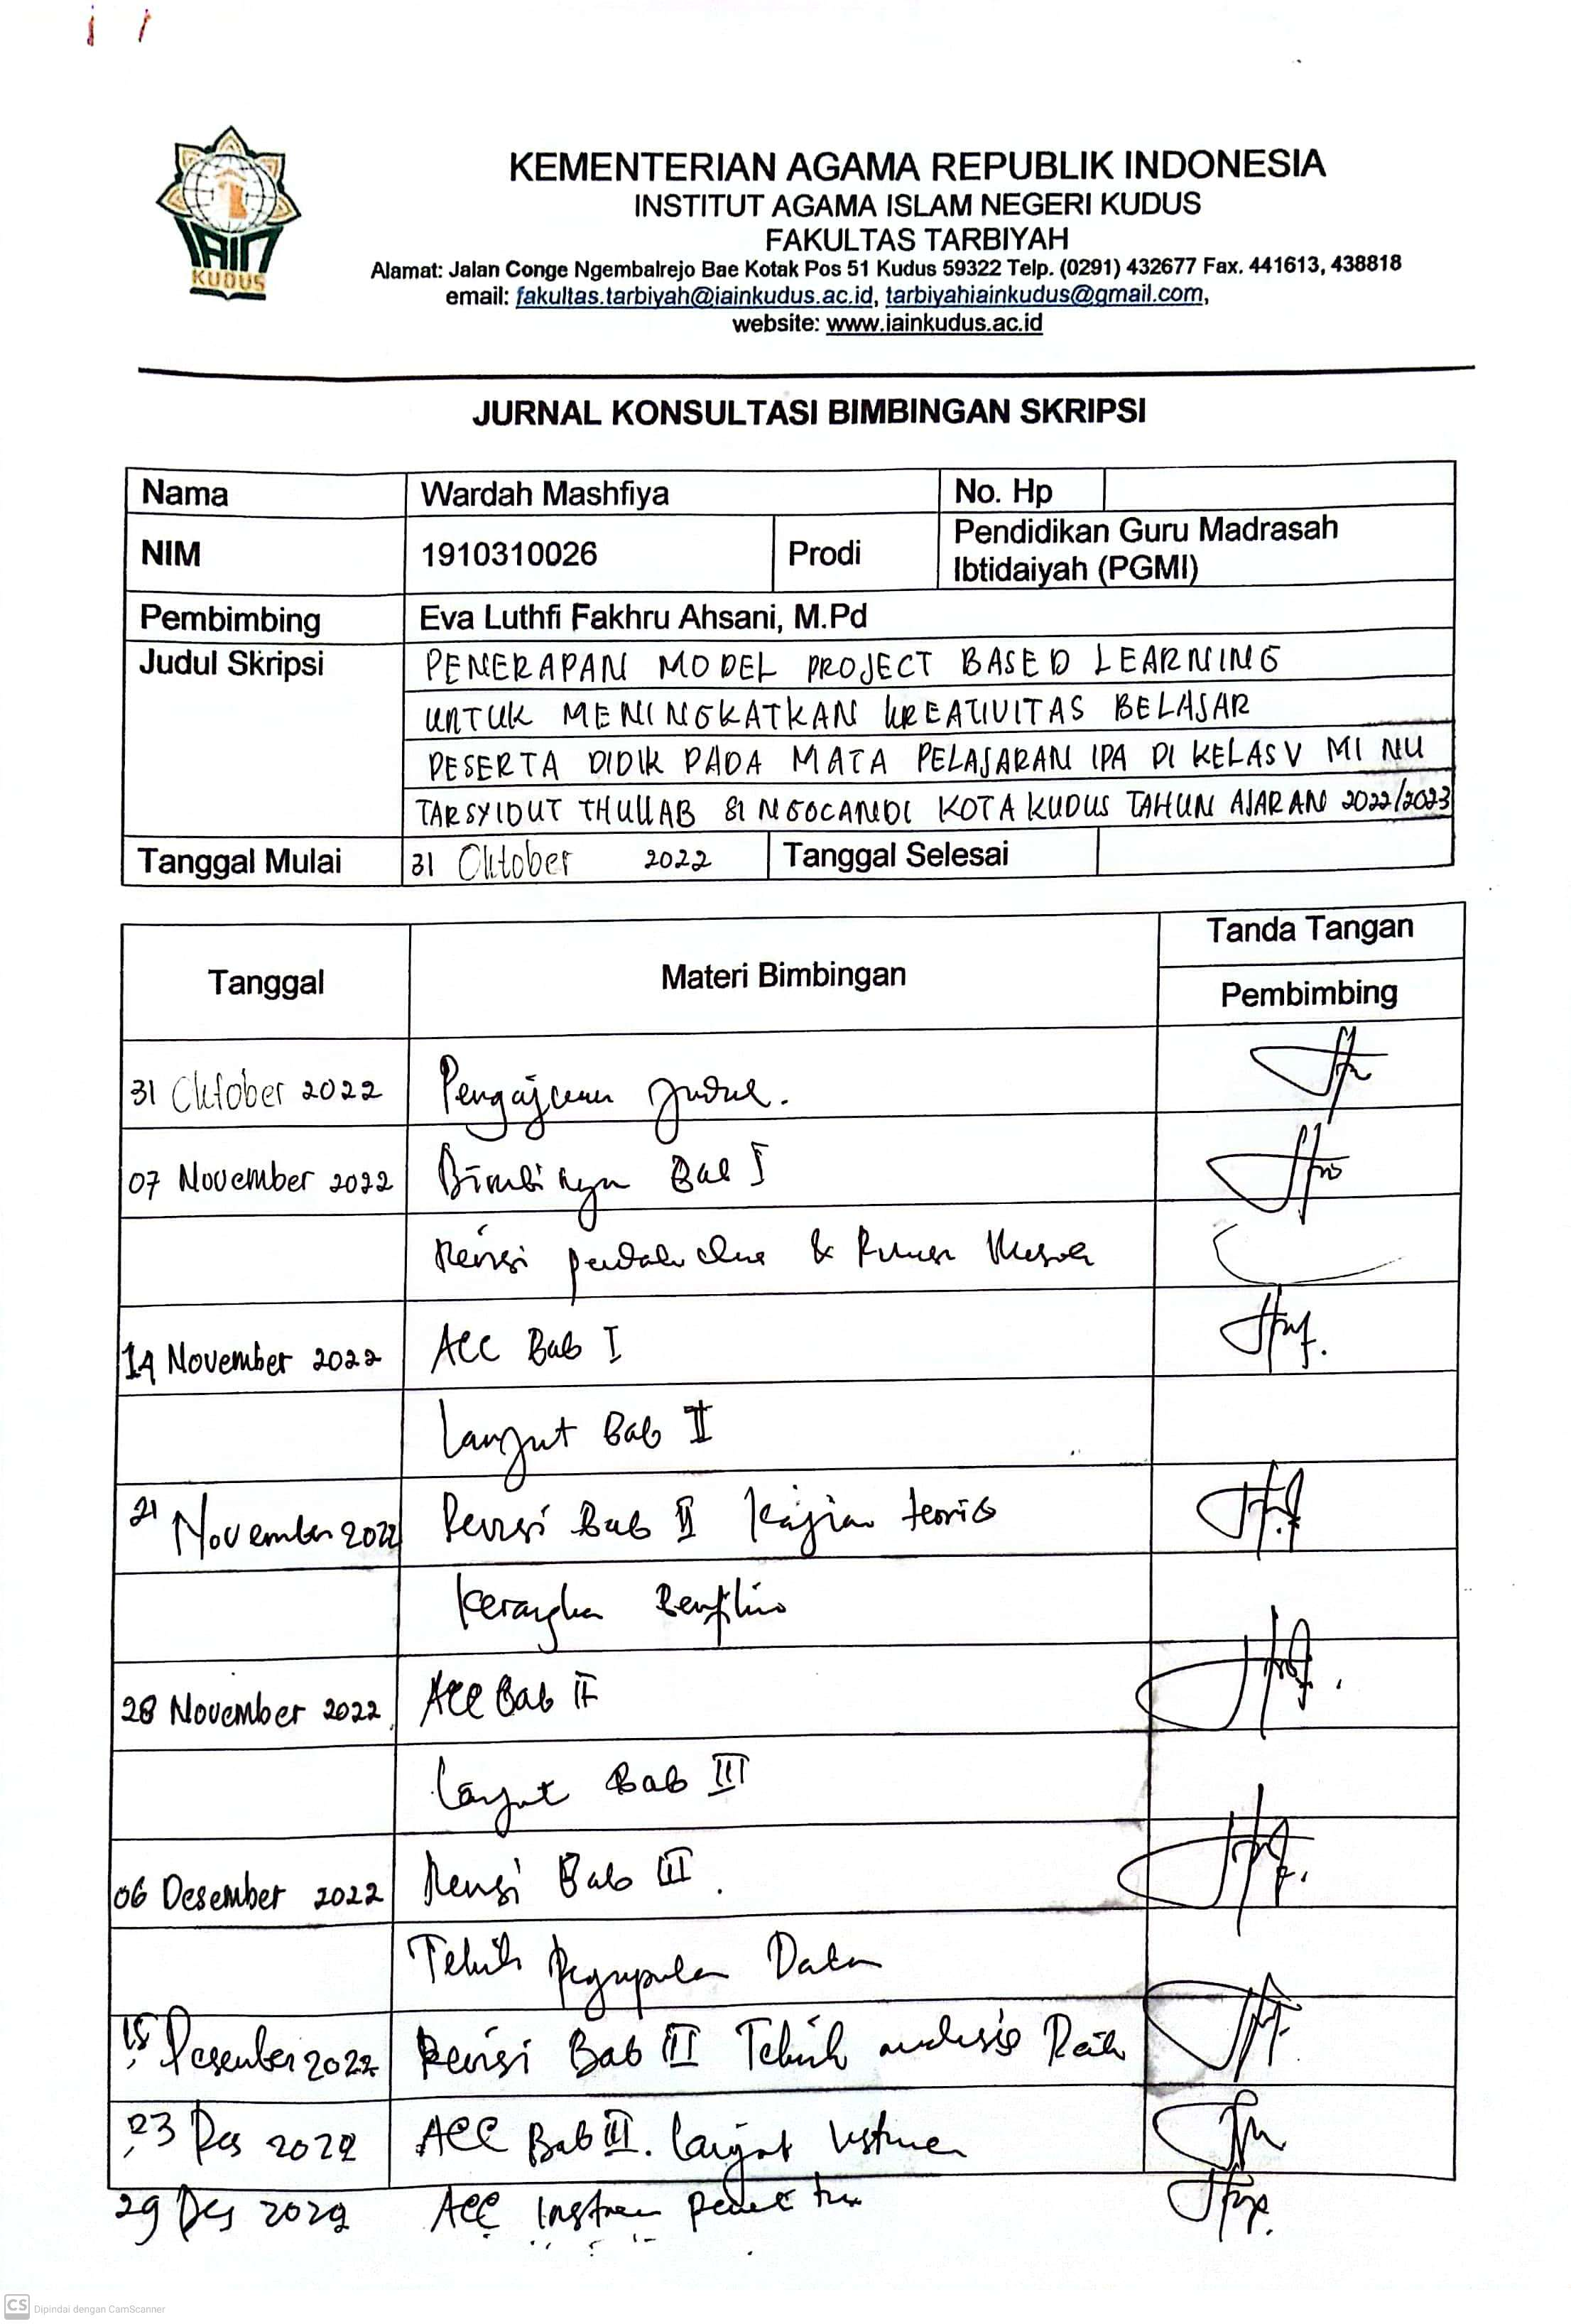 IAIN
KUDUS
KEMENTERIAN AGAMA REPUBLIK INDONESIA
INSTITUT AGAMA ISLAM NEGERI KUDUS
FAKULTAS TARBIYAH
Alamat: Jalan Conge Ngembalrejo Bae Kotak Pos 51 Kudus 59322 Telp. (0291) 432677 Fax. 441613, 438818
email: fakultas.tarbiyah@iainkudus.ac.id, tarbiyahiainkudus@gmail.com,
website: www.iainkudus.ac.id
JURNAL KONSULTASI BIMBINGAN SKRIPSI
Nama Wardah Mashfiya No. Hp
NIM 1910310026 Prodi Pendidikan Guru Madrasah
Ibtidaiyah (PGMI)
Pembimbing Eva Luthfi Fakhru Ahsani, M.Pd
Judul Skripsi PENERAPAN MODEL PROJECT BASED LEARNING
UNTUK MENINGKATKAN KREATIVITAS BELAJAR
PESERTA DIDIK PADA MATA PELAJARAN IPA DI KELAS V MI NU
TARSYIDUT THULLAB SINGOCANDI KOTA KUDUS TAHUN AJARAN 2022/2023
Tanggal Mulai 31 Oktober 2022 Tanggal Selesai
Tanggal Materi Bimbingan Tanda Tangan
Pembimbing
31 Oktober 2022 Pengajuan judul.
07 November 2022 Bimbingan Bab I
Revisi pendahuluan & Rumusan Masalah
14 November 2022 ACC Bab I
Lanjut Bab II
21 November 2022 Revisi Bab II Kajian teoris
Kerangka Berfikir
28 November 2022 ACC Bab II
Lanjut Bab III
06 Desember 2022 Revisi Bab III.
Teknik Pengumpulan Data
15 Desember 2022 Revisi Bab III Teknik analisis Data
23 Des 2022 ACC Bab III. Lanjut Instrumen
29 Des 2022 ACC Instrumen
CS Dipindai dengan CamScanner